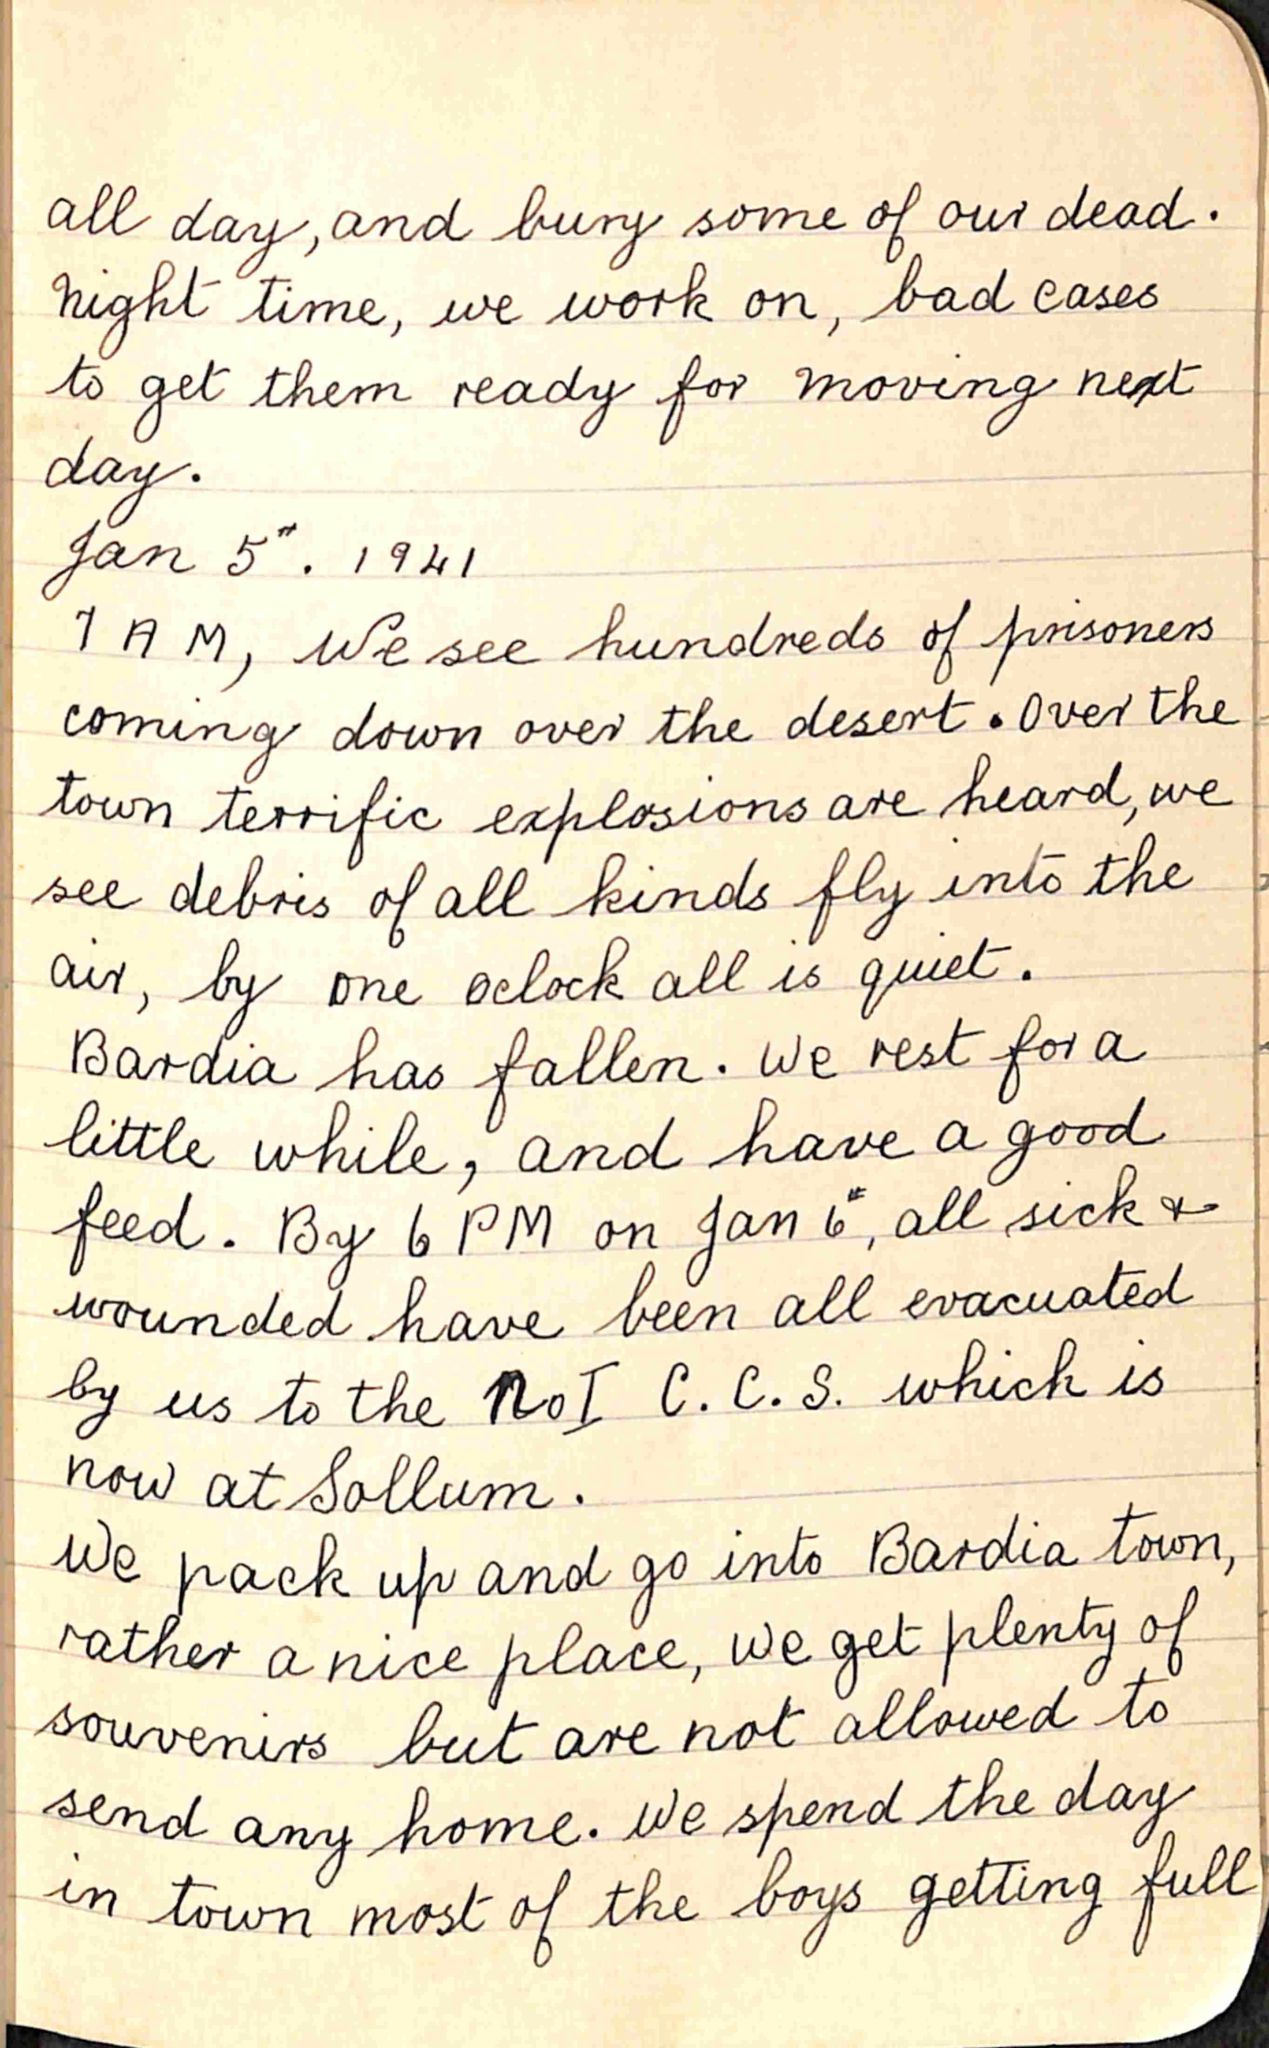 all day, and bury some of our dead.
Night time, we work on, bad cases
to get them ready for moving next
day.
Jan 5th. 1941
7 AM, We see hundreds of prisoners
coming down over the desert. Over the
town terrific explosions are heard, we
see debris of all kinds fly into the
air, by one oclock all is quiet.
Bardia has fallen. We rest for a
little while, and have a good
feed. By 6 PM on Jan 6th, all sick &
wounded have been all evacuated
by us to the No I C.C.S. which is
now at Sollum.
We pack up and go into Bardia town,
rather a nice place, we get plenty of
souvenirs but are not allowed to
send any home. We spend the day
in town most of the boys getting full